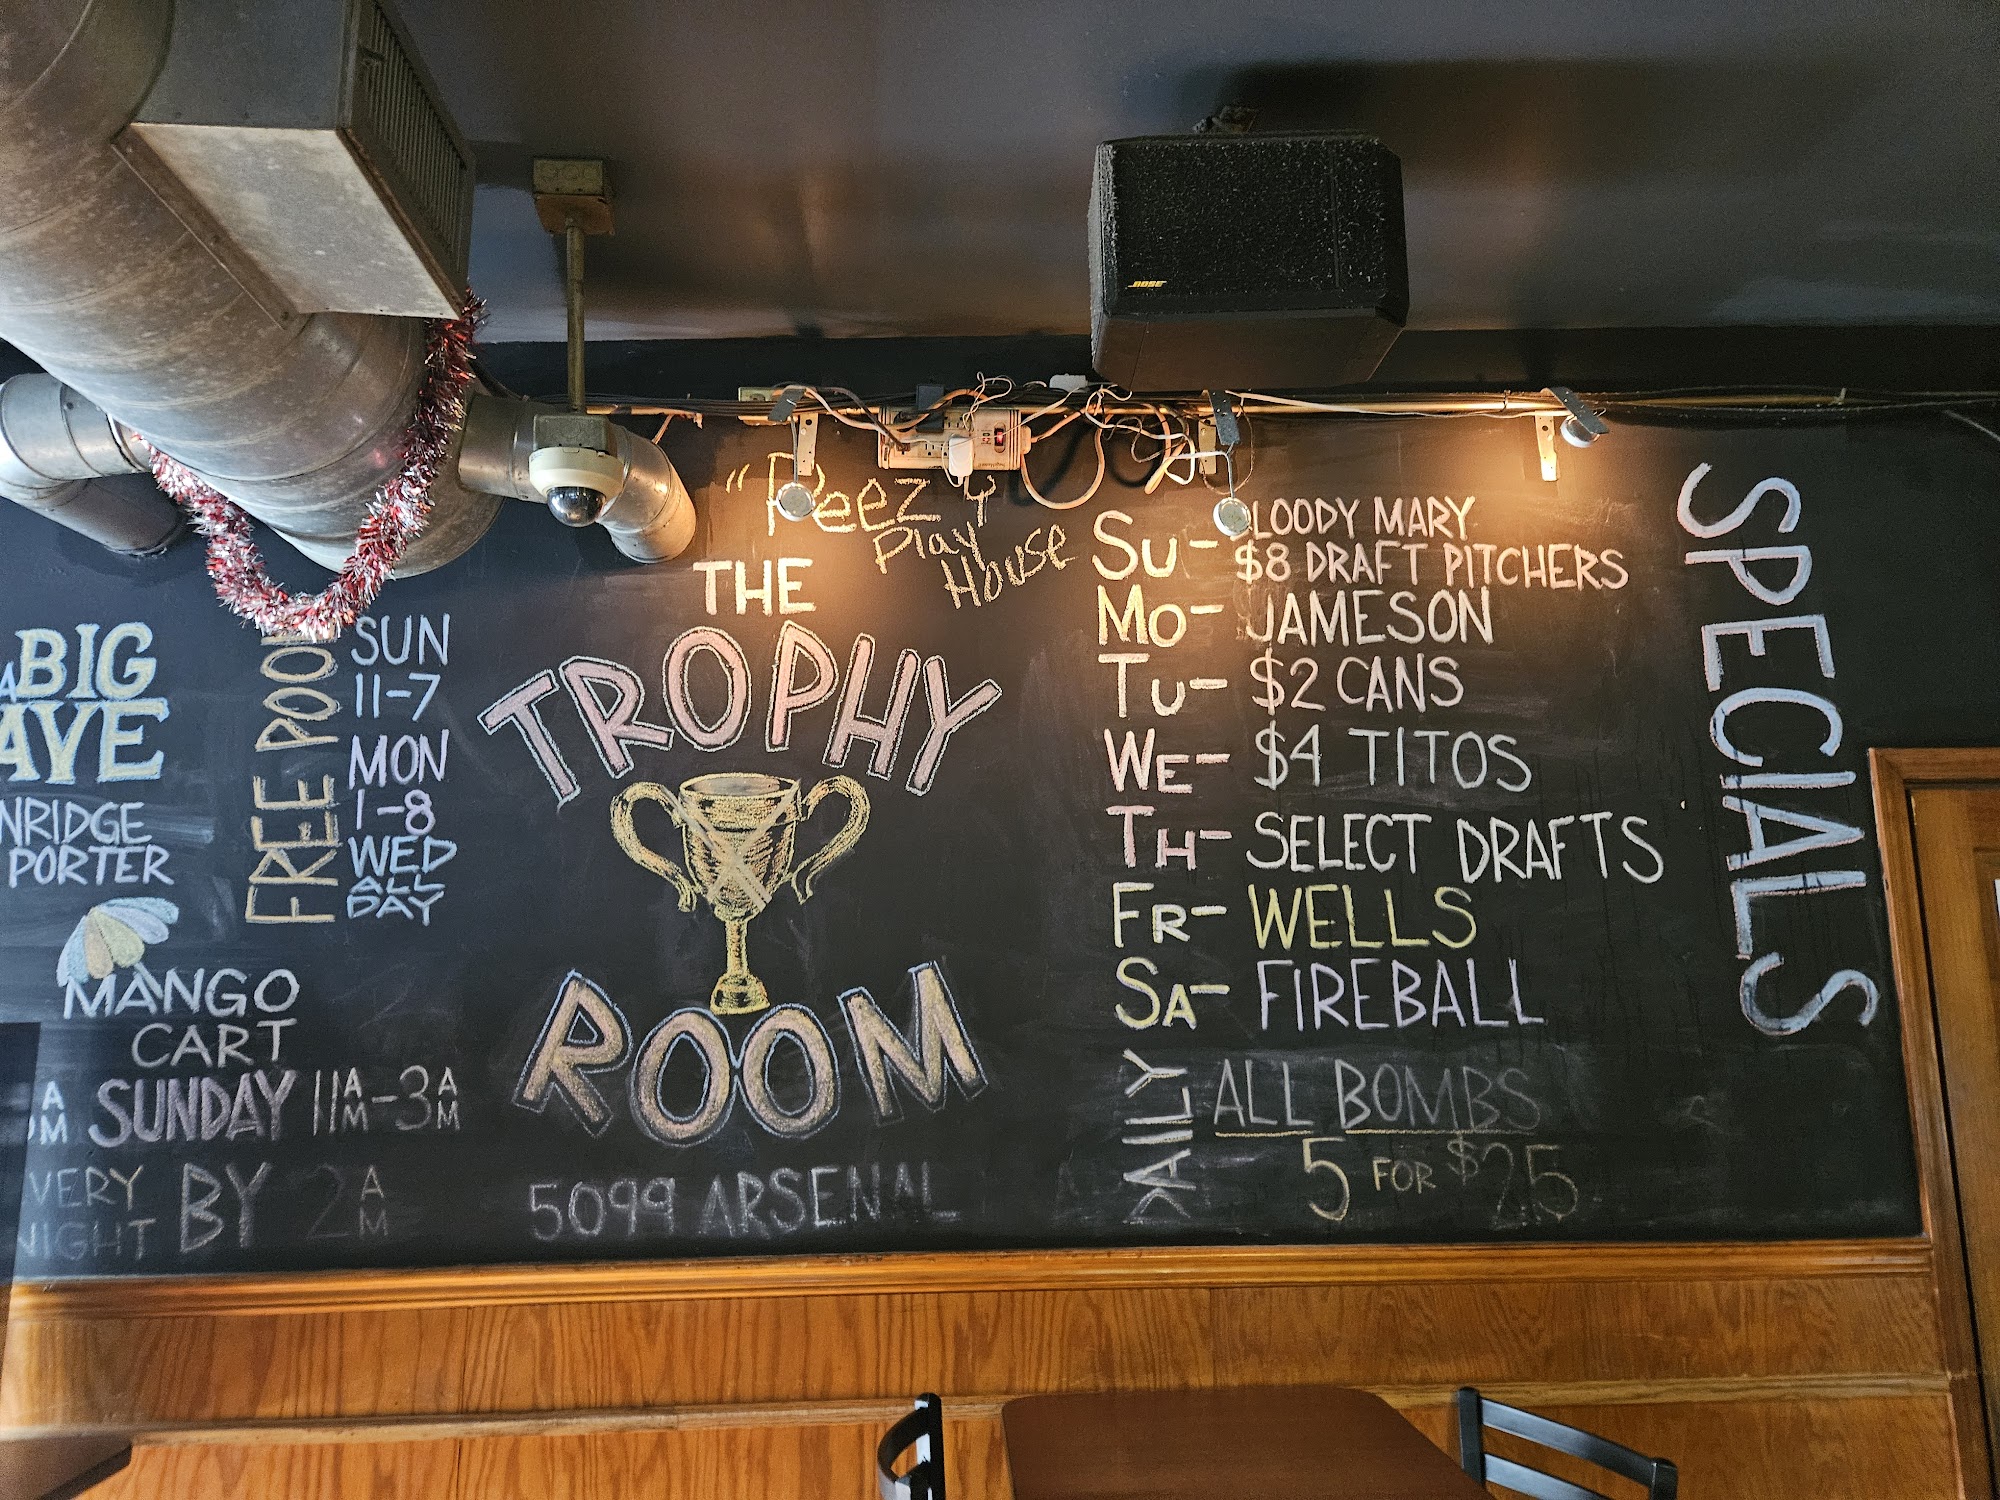 BOSE
BIG
FREE POOL
SUN
11-7
MON
1-8
WED
ALL
DAY
PORTER
MANGO
CART
SUNDAY 11AM-3AM
BY 2AM
"Peezy
Play
House
THE
TROPHY
ROOM
5099 ARSENAL
SPECIALS
SU- LOODY MARY
$8 DRAFT PITCHERS
MO- JAMESON
TU- $2 CANS
WE- $4 TITOS
TH- SELECT DRAFTS
FR- WELLS
SA- FIREBALL
DAILY
ALL BOMBS
5 FOR $25